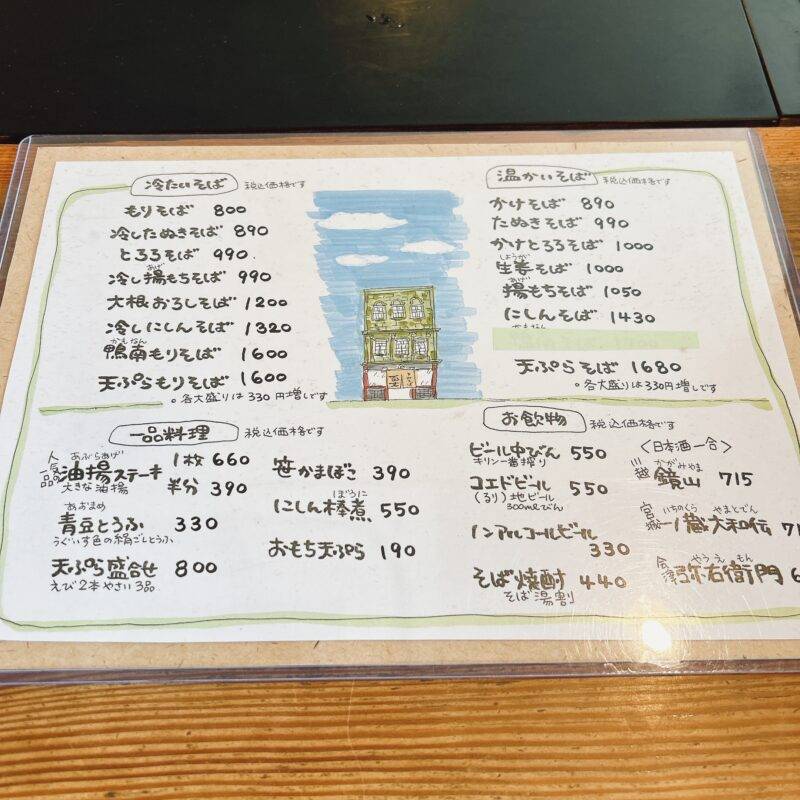 冷たいそば 税込価格です
もりそば 800
冷したぬきそば 890
とろろそば 990
あげ
冷し揚もちそば 990
大根おろしそば 1200
冷しにしんそば 1320
かもなん
鴨南もりそば 1600
天ぷらもりそば 1600
。各大盛りは330円増しです
温かいそば 税込価格です
かけそば 890
たぬきそば 990
かけとろろそば 1000
しょうが
生姜そば 1000
あげ
揚もちそば 1050
にしんそば 1430
かもなん
天ぷらそば 1680
。各大盛りは330円増しです
一品料理 税込価格です
人気品
あぶらあげ
油揚ステーキ 1枚 660
大きな油揚 半分 390
あおまめ
青豆とうふ 330
うぐいす色の絹ごしとうふ
天ぷら盛合せ 800
えび2本やさい3品
笹かまぼこ 390
ぼうに
にしん棒煮 550
おもち天ぷら 190
お飲物 税込価格です
ビール中びん 550
キリン一番搾り
コエドビール 550
(るり)地ビール
300mlびん
ノンアルコールビール
330
そば焼酎 440
そば湯割
〈日本酒一合〉
かがみやま
川越 鏡山 715
いちのくら やまとでん
宮城 一ノ蔵大和伝 71
やうえもん
会津 弥右衛門 6